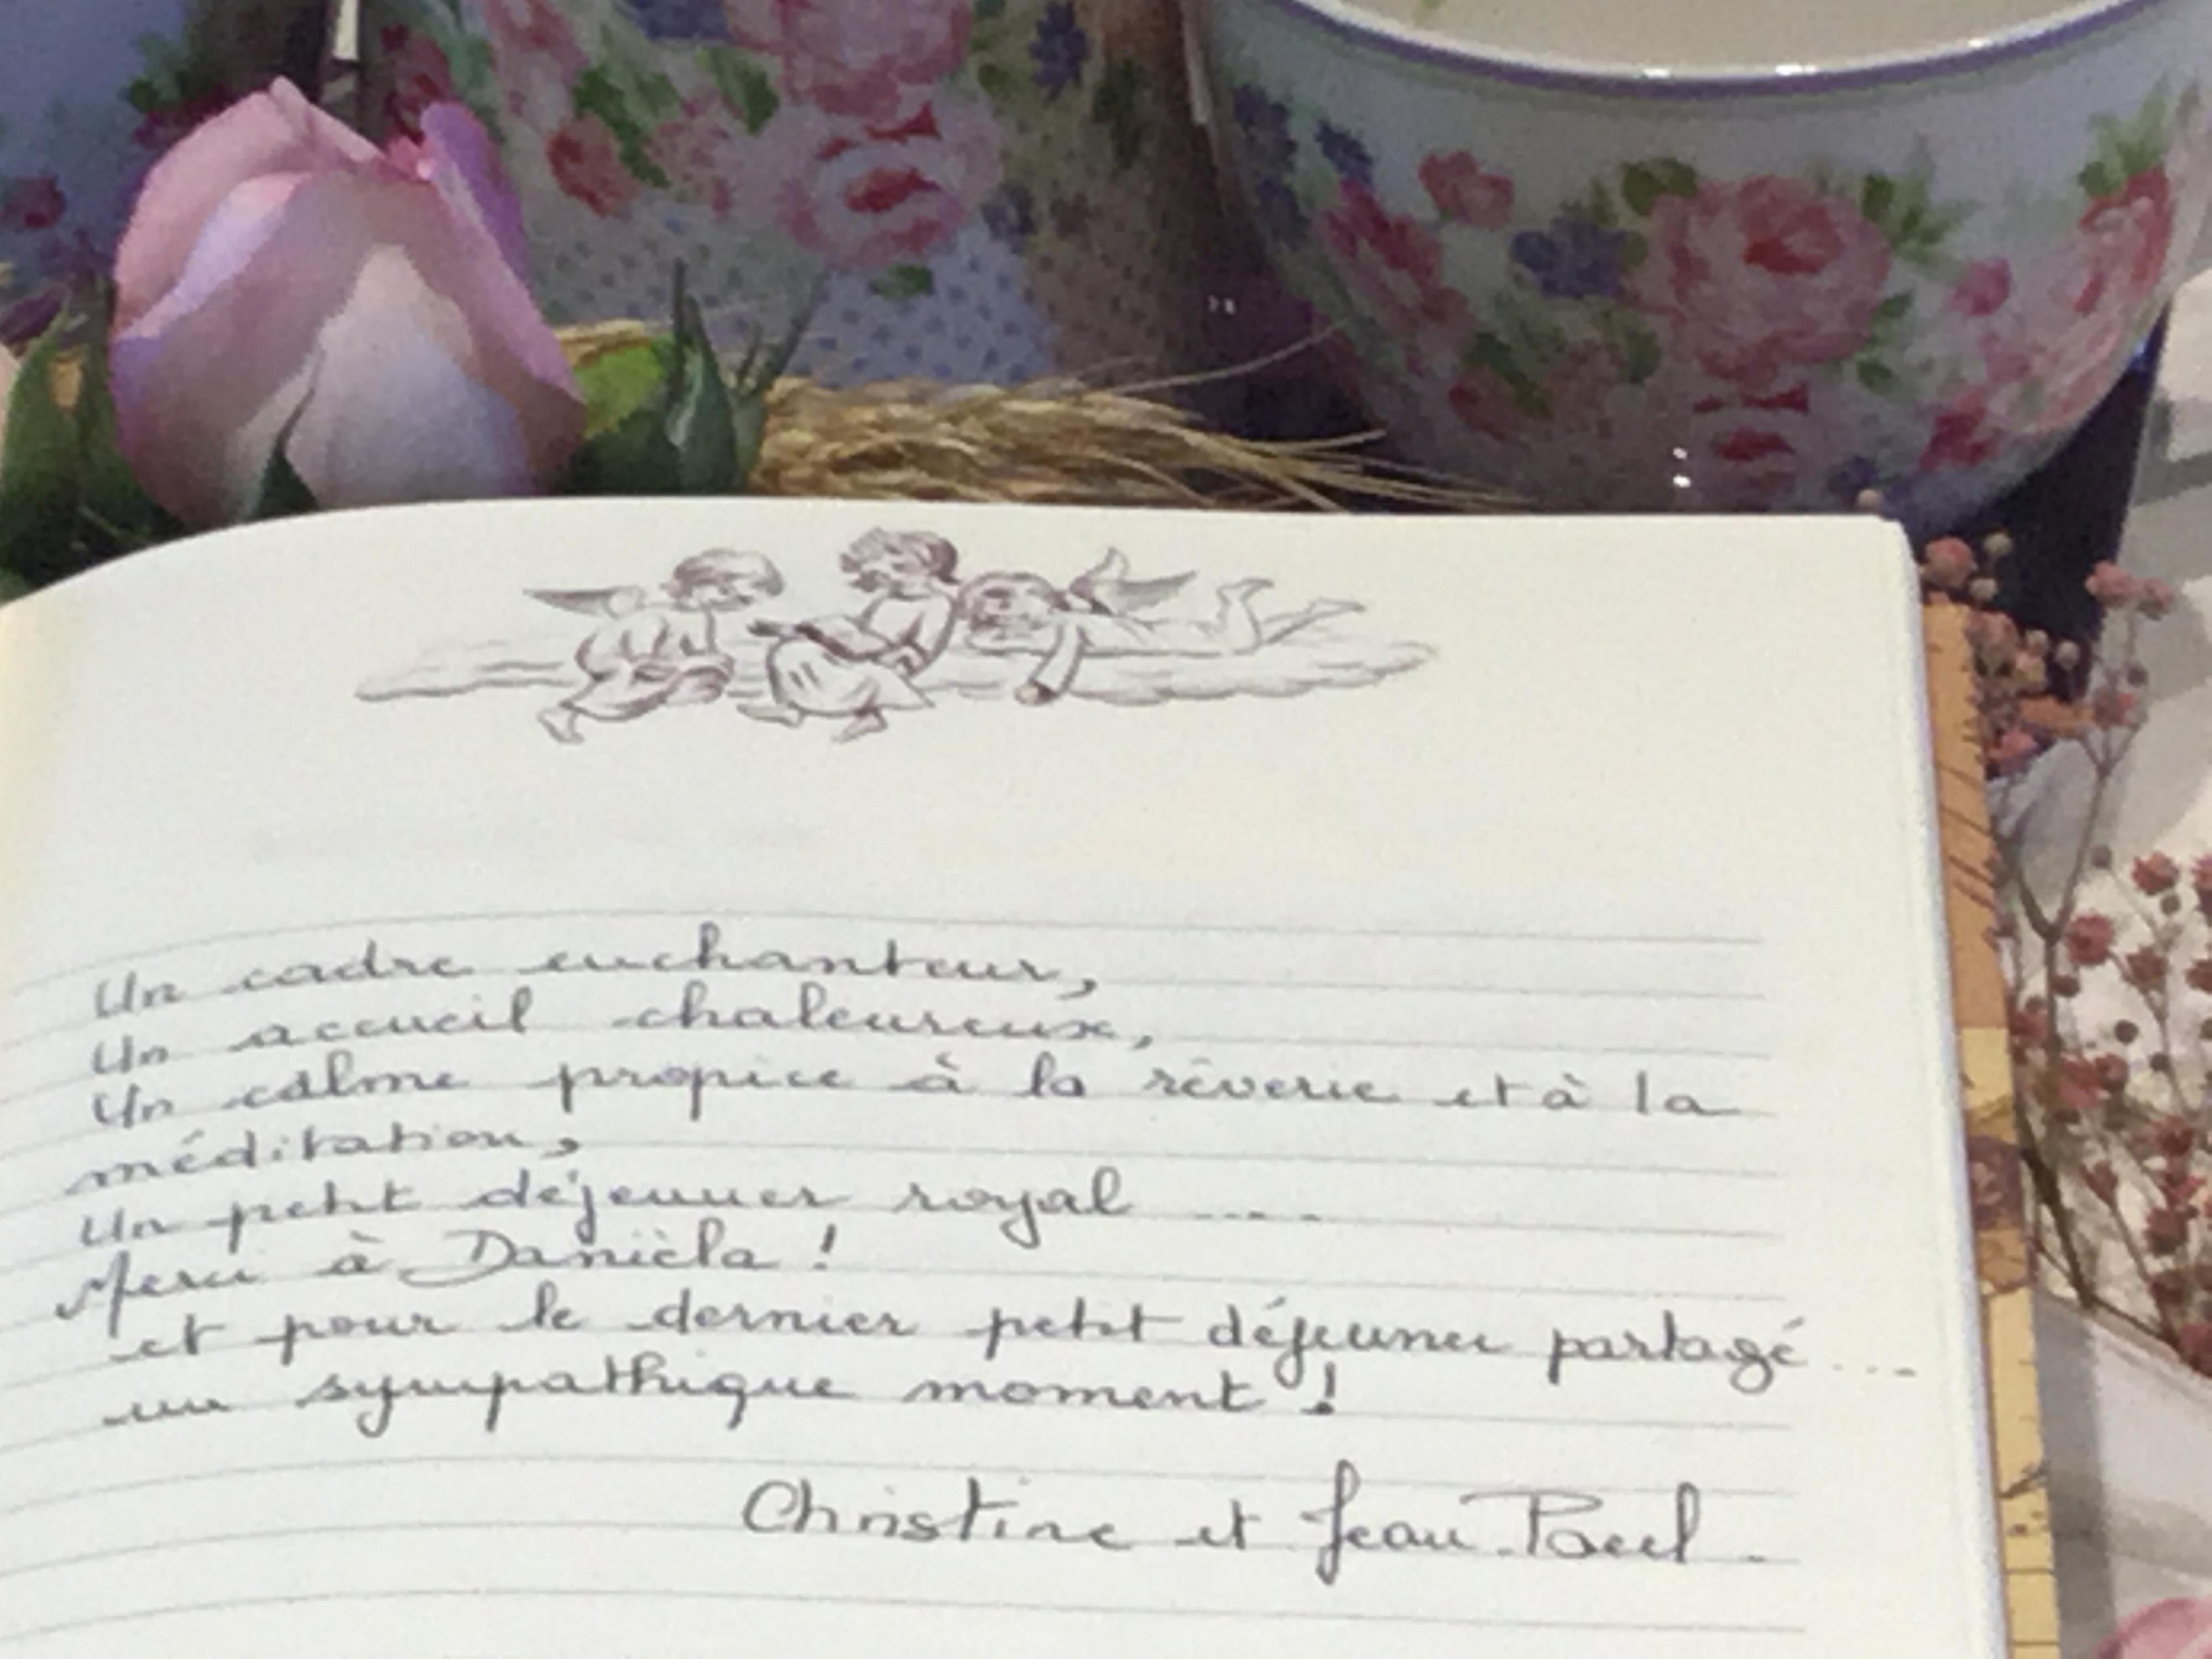 Un cadre enchanteur,
Un accueil chaleureux,
Un calme propice à la rêverie et à la
méditation,
Un petit déjeuner royal ....
Merci à Danièla !
et pour le dernier petit déjeuner partagé ...
un sympathique moment !
Christine et Jean-Paul.